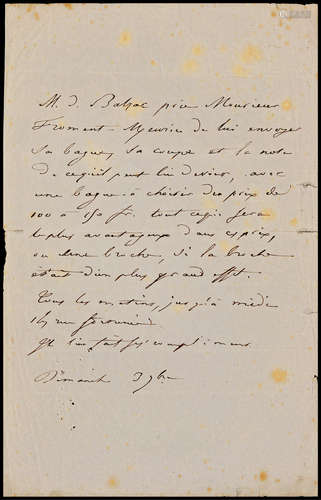 M. de Balzac prie Monsieur
Froment-Meurice de lui envoyer
sa bague, sa coupe et la note
de ce qu'il peut lui devoir, avec
une bague à choisir des prix de
100 à 150 fr. tout ce qu'il fera
le plus avantageux dans ce prix,
ou une broche, si la broche
était d'un plus grand effet.
Tous les matins, jusqu'à midi
rue fortunée
fait ses compliments
Dimanche 9bre